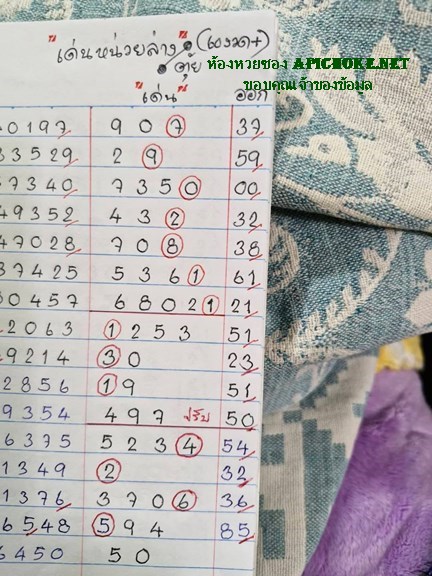 "เด่นหน่วยล่าง" (60งวด+)
ตุ้ย
ห้องหวยซอง APICHOKE.NET
ขอบคุณเจ้าของข้อมูล
"เด่น" ออก
0197 9 0 7 37
33529 2 9 59
7340 7 3 5 0 00
49352 4 3 2 32
47028 7 0 8 38
37425 5 3 6 1 61
30457 6 8 0 2 1 21
2063 1 2 5 3 51
9214 3 0 23
2856 1 9 51
9354 4 9 7 ปรับ 50
6375 5 2 3 4 54
1349 2 32
1376 3 7 0 6 36
6548 5 9 4 85
6450 5 0